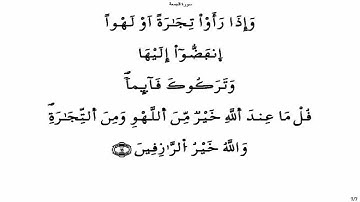 سورة الجمعة
وَإِذَا رَأَوْاْ تِجَٰرَةً اَوْ لَهْواً
اِنفَضُّوٓاْ إِلَيْهَا
وَتَرَكُوكَ قَآئِماًۖ
قُلْ مَا عِندَ اَ۬للَّهِ خَيْرٞ مِّنَ اَ۬للَّهْوِ وَمِنَ اَ۬لتِّجَٰرَةِۖ
وَاللَّهُ خَيْرُ اُ۬لرَّٰزِقِينَۖ
1/1